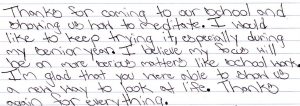 Thanks for coming to our school and
showing us how to meditate. I would
like to keep trying it, especially during
my senior year. I believe my focus will
be on more serious matters like school work.
I'm glad that you were able to show us
a new way to look at life. Thanks
again for everything.